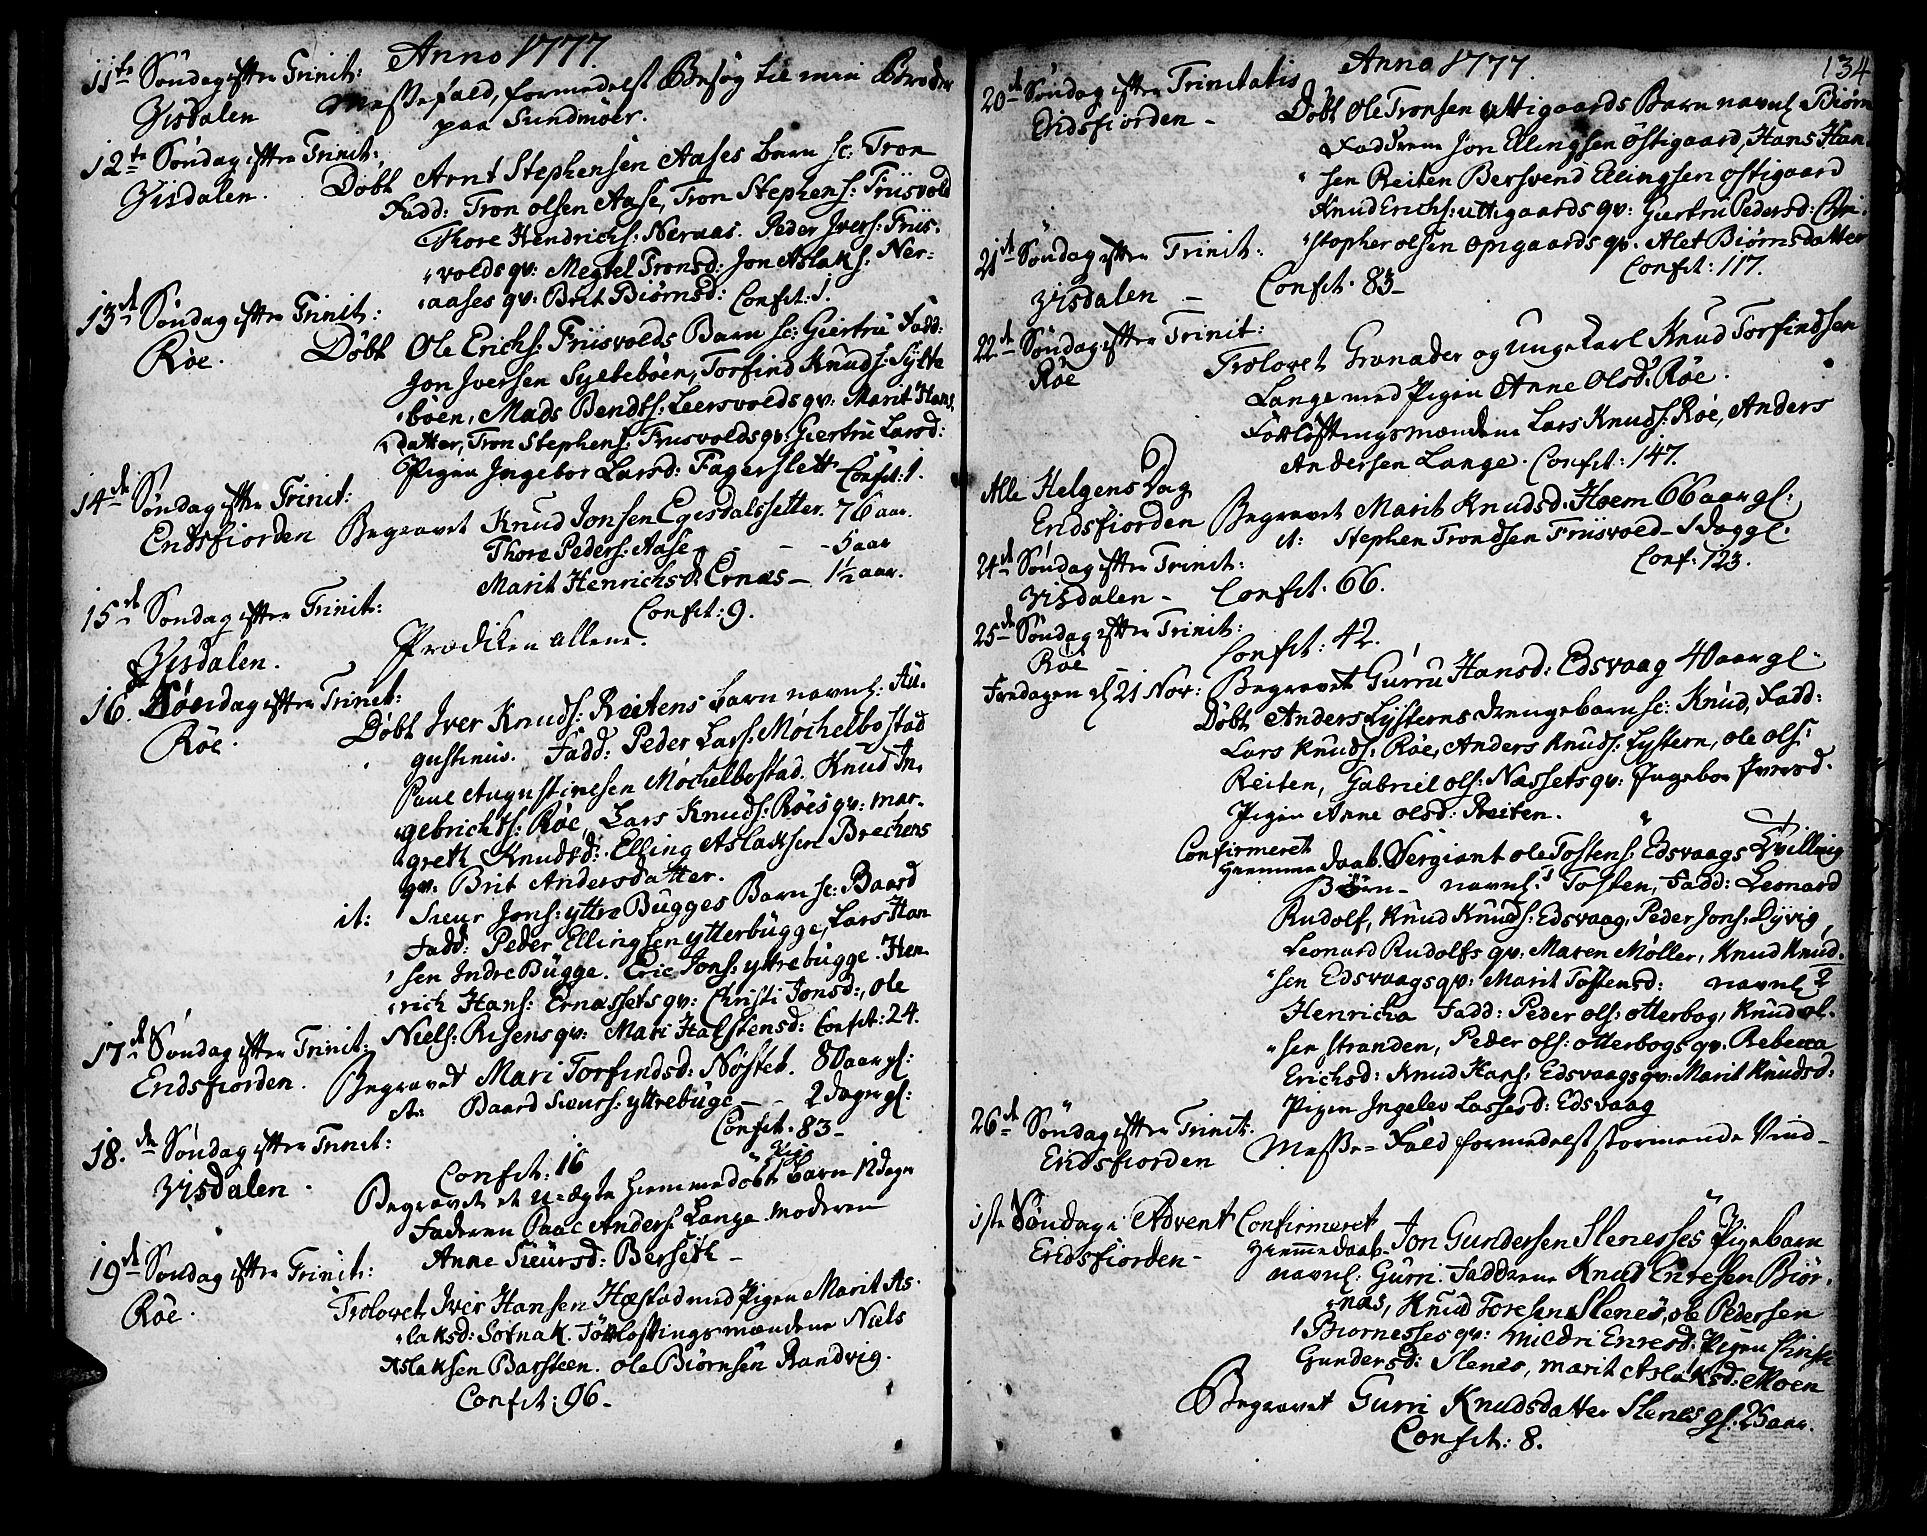 Anno 1777.
11te Søndag efter Trinit:
Messefald, formedelst Besøg til min Broder
Visdalen
paa Sundmøer.
12te Søndag efter Trinit:
Visdalen.
Døbt Arnt Stephensen Aases barn sc: Tron
Fadd: Tron olsen Aase, Tron Stephens: Friisvold
Thore Hendrichs: Neraas. Peder Ivers: Friis-
volds qv: Megtel Tronsd: Jon Aslaks: Ner-
aases qv: Brit Biørnsd: Confit: 1.
13de Søndag efter Trinit:
Røe.
Døbt Ole Erichs: Friisvolds Barn sc: Giertru Fadd:
Jon Iversen Syltebøen, Torfind Knuds: Sylte
bøen, Mads Bendts: Leersvolds qv: Marit Hans
datter, Tron Stephens: Friisvolds qv: Giertru Larsd:
Pigen Ingebor Larsd: Fagerslett Confit: 1.
14de Søndag efter Trinit:
Eridsfiorden
Begravet Knud Jonsen Egisdalssetter. 76 aar.
Thore Peders: Aase - - - 5 aar
Marit Henrichsd: Ernæs - 1½ aar.
Confit: 9.
15de Søndag efter Trinit:
Visdalen.
Prædiken allene.
16de Søndag efter Trinit:
Røe.
Døbt Iver Knuds: Reitens barn navnl: Au-
gustinus. Fadd: Peder Lars: Mochelbostad
Paul Augustinesen Mochelbostad. Knud In-
gebrichts: Røe, Lars Knuds: Røes qv: Mar-
greth Knudsd: Elling Aslaksen Brechens
qv: Brit Andersdatter.
it: Sieur Jons: yttre Bugges Barn sc: Baard
Fadd: Peder Ellingsen ytterbugge, Lars Han
sen Indre Bugge. Eric Jons: yttrebugge. Hen
rich Hans: Ernæssets qv: Christi Jonsd:, ole
Niels: Risens qv: Mari Halstensd: Confit: 24.
17de Søndag efter Trinit:
Eridsfiorden.
Begravet Mari Torfindsd: Nøstet. 80 aar gl:
it: Baard Sieurs: yttrebuge - - 2 dager gl:
Confit: 83-
18de Søndag efter Trinit:
Visdalen
Confit: 16
Begravet et U-ægte hiemmedøbt Pige barn 12 dager
Faderen Paul Anders: Lange. Moderen
Anne Sieursd: Berseth -
19de Søndag efter Trinit:
Røe.
Trolovet Iver Hansen Hæstad med Pigen Marit As-
laksd: Sotnak. Forløftningsmændene Niels
Aslaksen Barsteen. ole Biørnsen Randvig.
Confit: 96-
Anno 1777.
134
20de Søndag efter Trinitatis
Eridsfiorden -
Døbt Ole Tronsen uttigaards Barn navnl: Biørn
Fadderne Jon Ellingsen Østigaard, Hans Han
sen Reiten Bersvend Ellingsen østigaard
Knud Erichs: uttigaards qv: Giertru Pedersd: Chri-
stopher olsen opigaards qv: Alet Biørnsdatter
Confit: 117.
21de Søndag efter Trinit:
Visdalen -
Confit: 83-
22de Søndag efter Trinit:
Røe
Trolovet Granader og unge Karl Knud Torfindsen
Lange med Pigen Anne Olsd: Røe.
Forløftningsmændene Lars Knuds: Røe, Anders
Andersen Lange. Confit: 147.
Alle Helgens Dag
Eridsfiorden
Begravet Marit Knudsd: Hoem 66 aar gl:
it: Stephen Trondsen Friisvold - 1 dag gl:
Conf: 123.
24de Søndag efter Trinit:
Visdalen -
Confit: 66.
25de Søndag efter Trinit:
Røe
Confit: 42.
Begravet Gurru Hansd: Edsvaag 40 aar gl:
Fredagen d 21 Nov:
Døbt Anders Lysterns drengebarn sc: Knud, Fadd:
Lars Knuds: Røe, Anders Knuds: Lystern, ole ols:
Reiten, Gabriel ols: Næssets qv: Ingebor Iversd:
Pigen Anne olsd: Reiten.
Confirmeret
Hiemmedaab. Sergiant ole Tostens: Edsvaags Tvilling
Børn - navnl: 1 Tosten, Fadd: Leonard
Rudolf, Knud Knuds: Edsvaag, Peder Jons: Dyvig,
Leonard Rudolfs qv: Maren Møller, Knud Knud-
sen Edsvaags qv: Marit Tostensd: navnl: 2
Henricha Fadd: Peder ols: otterbog, Knud ol-
sen stranden, Peder ols: otterbogs qv: Rebecca
Erichsd: Knud Hans: Edsvaags qv: Marit Knudsd:
Pigen Ingelev Lassesd: Edsvaag
26de Søndag efter Trinit:
Eridsfiorden
Messe-Fald formedelst stormende Vind-
1ste Søndag i Advent
Eridsfiorden-
Confirmeret
Hiemmedaab- Jon Gundersen Slenesses Pigebarn
navnl: Gurri. Fadderne Knud Enresen Biør-
næs, Knud Toresen Slenes, ole Pedersen
Biørnesses qv: Mildri Enresd: Pigen Christi
Gundersd: Slenes, Marit Aslaksd: Moen
Begravet Gurri Knudsdatter Slenes gl: 25 aar.
Confit: 8.